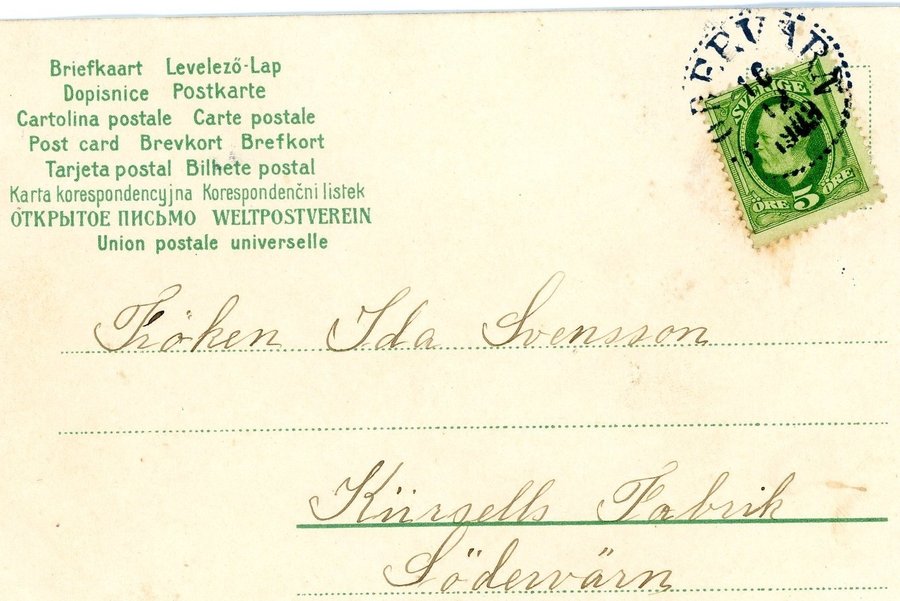 Briefkaart Levelező-Lap
Dopisnice Postkarte
Cartolina postale Carte postale
Post card Brevkort Brefkort
Tarjeta postal Bilhete postal
Karta korespondencyjna Korespondenčni listek
ОТКРЫТОЕ ПИСЬМО WELTPOSTVEREIN
Union postale universelle
SVERIGE
ÖRE 5 ÖRE
Fröken Ida Svensson
Kürsells Fabrik
Södervärn